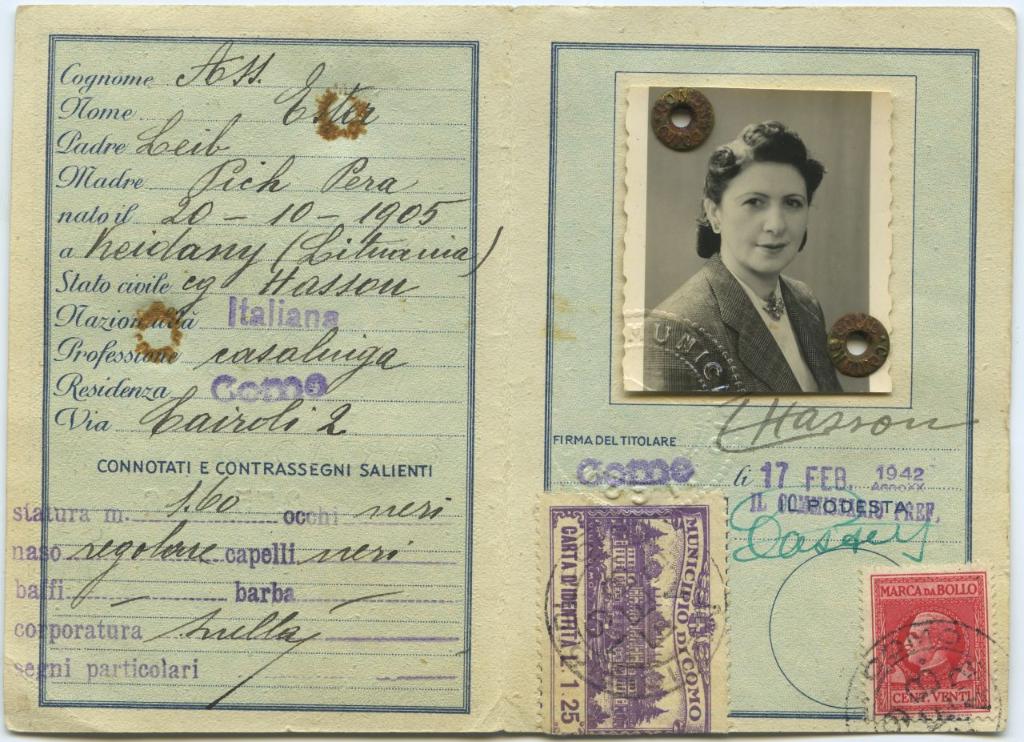 Cognome Ass.
Nome Ester
Padre Leib
Madre Pich Pera
nato il 20 - 10 - 1905
a Keidany (Lituania)
Stato civile cg Hasson
Nazionalità Italiana
Professione casalinga
Residenza Como
Via Cairoli 2
CONNOTATI E CONTRASSEGNI SALIENTI
statura m. 1.60 occhi neri
naso regolare capelli neri
baffi - barba -
corporatura snella
segni particolari
MUNICI
Hasson
FIRMA DEL TITOLARE
Como li 17 FEB. 1942
IL PODESTA
MUNICIPIO DI COMO
CARTA D'IDENTITÀ L. 1.25
MARCA DA BOLLO
CENT. VENTI